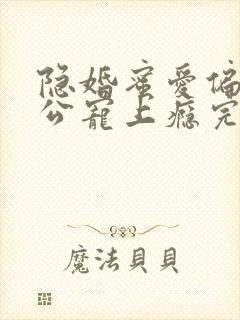 隐婚蜜爱偏
公宠上瘾完
魔法貝貝